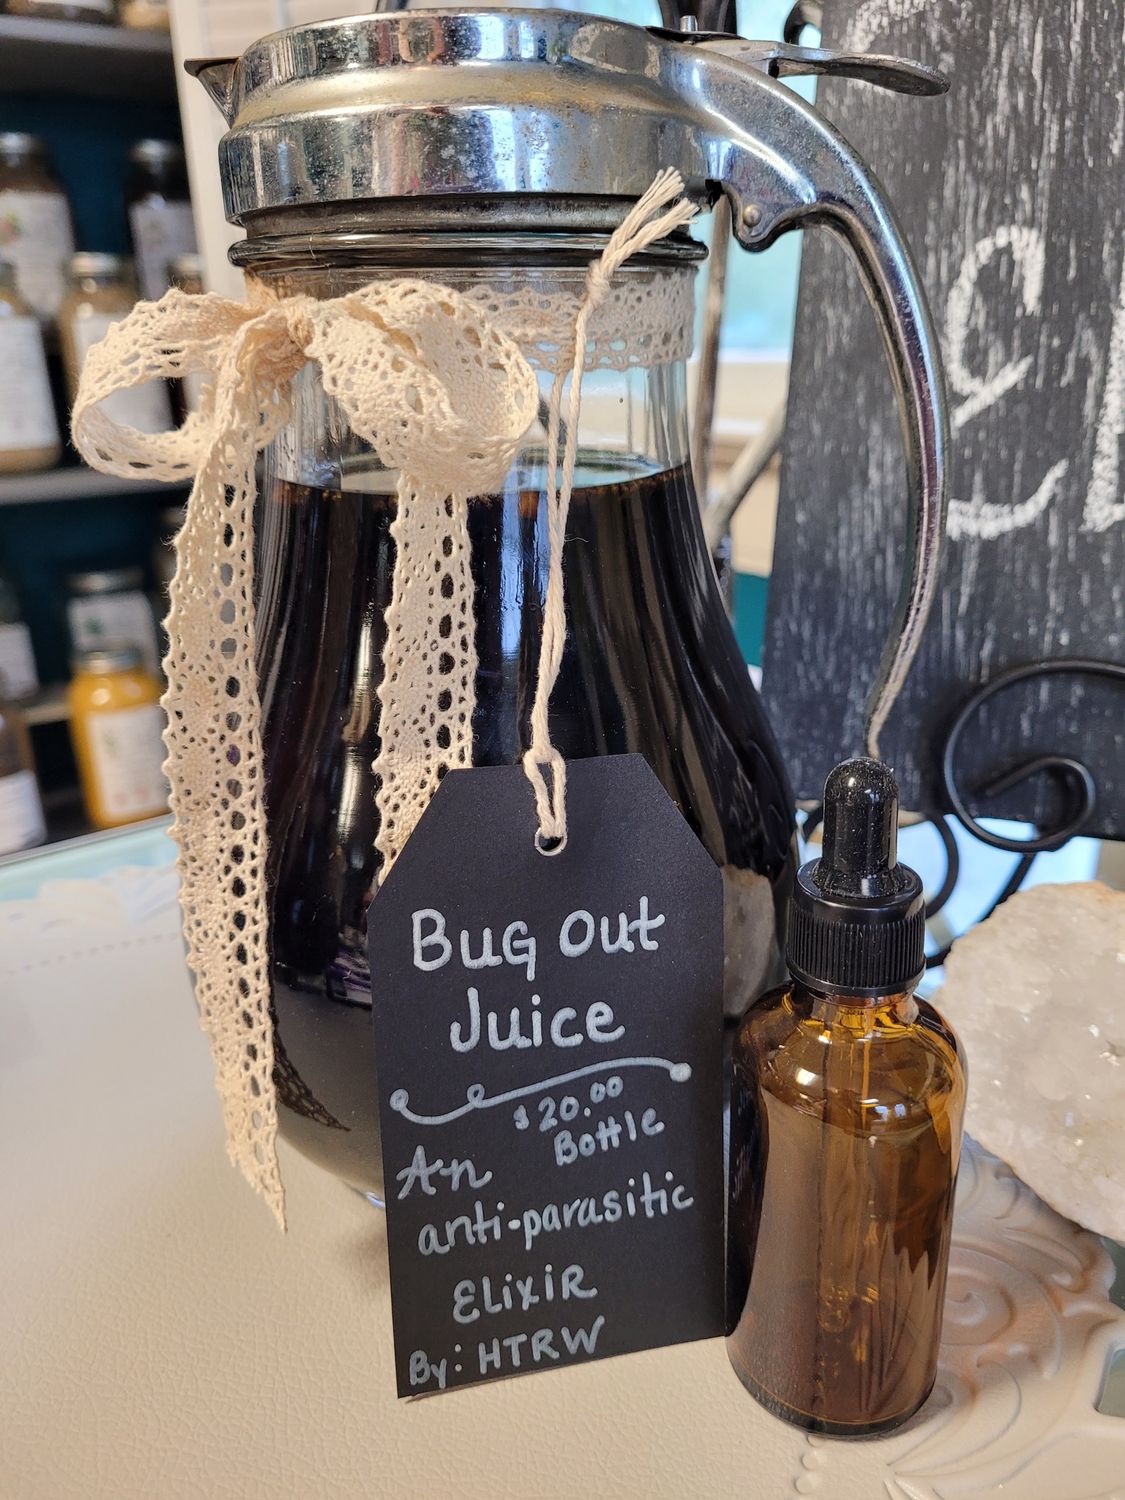 Bug Out
Juice
$20.00
Bottle
An
anti-parasitic
Elixir
By: HTRW